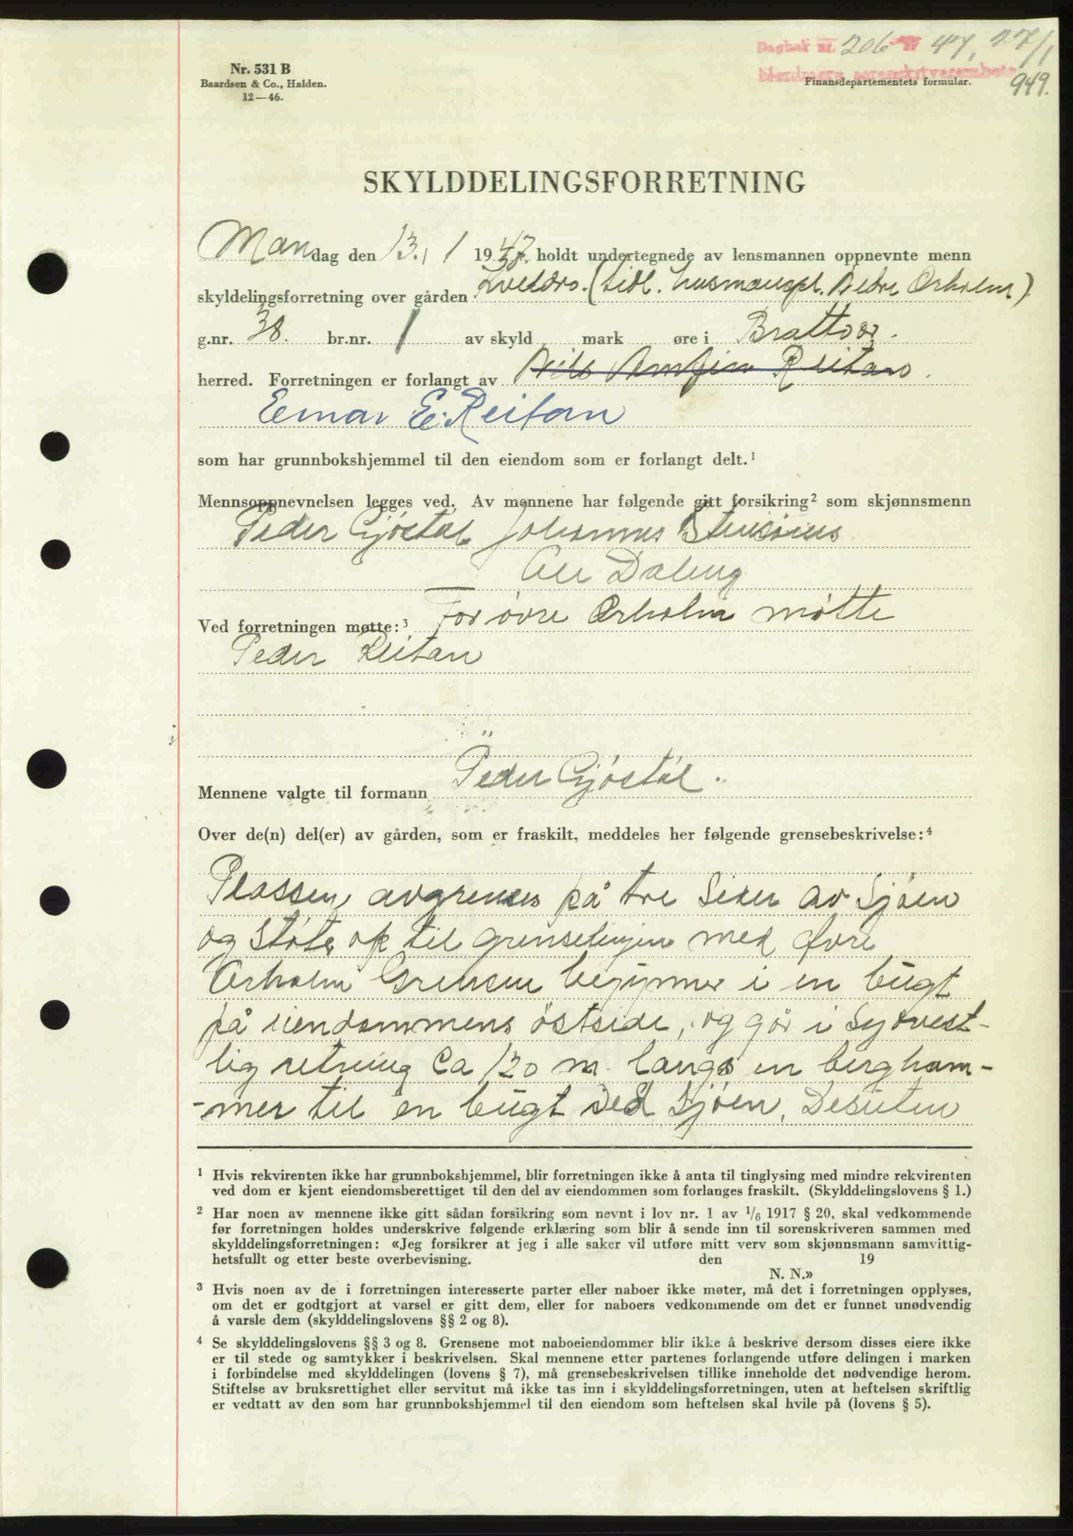 Dagbok nr. 206 47, 27/1
949.
Nr. 531 B
Baardsen & Co., Halden.
12—46.
Finansdepartementets formular.
SKYLDDELINGSFORRETNING
Mandag den 13. / 1 1947. holdt undertegnede av lensmannen oppnevnte menn
skyldelingsforretning over gården Kveldro. (tidl. husmannspl. Nedre Orholm).
g.nr. 38. br.nr. 1 av skyld mark øre i Brattvær.
herred. Forretningen er forlangt av Nils Arnfinn Reitan.
Einar E. Reitan
som har grunnbokshjemmel til den eiendom som er forlangt delt.¹
Mennsoppnevnelsen legges ved. Av mennene har følgende gitt forsikring² som skjønnsmenn
Peder Gjöstöl Johannes
Ole Daling
Ved forretningen møtte:³ For øvre Orholm møtte
Peder Reitan
Mennene valgte til formann Peder Gjöstöl.
Over de(n) del(er) av gården, som er fraskilt, meddeles her følgende grensebeskrivelse:⁴
Plassen avgrenses på tre Sider av Sjøen
og Støter op til grenselinjen med Øvre
Orholm Grensen begynner i en bugt
på eiendommens östside, og går i Sydvest-
lig retning Ca 120 m. langs en bergham-
-mer til en bugt ved Sjøen. Desuten
¹ Hvis rekvirenten ikke har grunnbokshjemmel, blir forretningen ikke å anta til tinglysing med mindre rekvirenten
ved dom er kjent eiendomsberettiget til den del av eiendommen som forlanges fraskilt. (Skylddelingslovens § 1.)
² Har noen av mennene ikke gitt sådan forsikring som nevnt i lov nr. 1 av 1/6 1917 § 20, skal vedkommende
før forretningen holdes underskrive følgende erklæring som blir å sende inn til sorenskriveren sammen med
skylddelingsforretningen: «Jeg forsikrer at jeg i alle saker vil utføre mitt verv som skjønnsmann samvittig-
hetsfullt og etter beste overbevisning. den 19
N. N.»
³ Hvis noen av de i forretningen interesserte parter eller naboer ikke møter, må det i forretningen opplyses,
om det er godtgjort at varsel er gitt dem, eller for naboers vedkommende om det er funnet unødvendig
å varsle dem (skylddelingslovens §§ 2 og 8).
⁴ Se skylddelingslovens §§ 3 og 8. Grensene mot naboeiendommer blir ikke å beskrive dersom disses eiere ikke
er til stede og samtykker i beskrivelsen. Skal mennene etter partenes forlangende utføre delingen i marken
i forbindelse med skylddelingen (lovens § 7), må grensebeskrivelsen tillike inneholde det nødvendige herom.
Stiftelse av bruksrettighet eller servitut må ikke tas inn i skylddelingsforretningen, uten at heftelsen skriftlig
er vedtatt av den som har grunnbokshjemmel til den eiendom som heftelsen skal hvile på (lovens § 5).